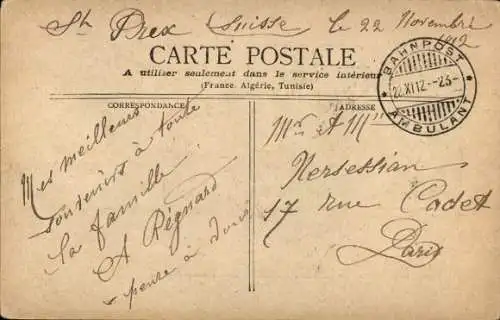 St Prex Suisse le 22 Novembre
1912
CARTE POSTALE
A utiliser seulement dans le service intérieur
(France, Algérie, Tunisie)
BAHNPOST
22.XI.12.-23-
AMBULANT
CORRESPONDANCE
Mes meilleurs
souvenirs à toute
la famille
A Regnard
pense à vous
ADRESSE
Mr et Mme
Nersessian
17 rue Cadet
Paris